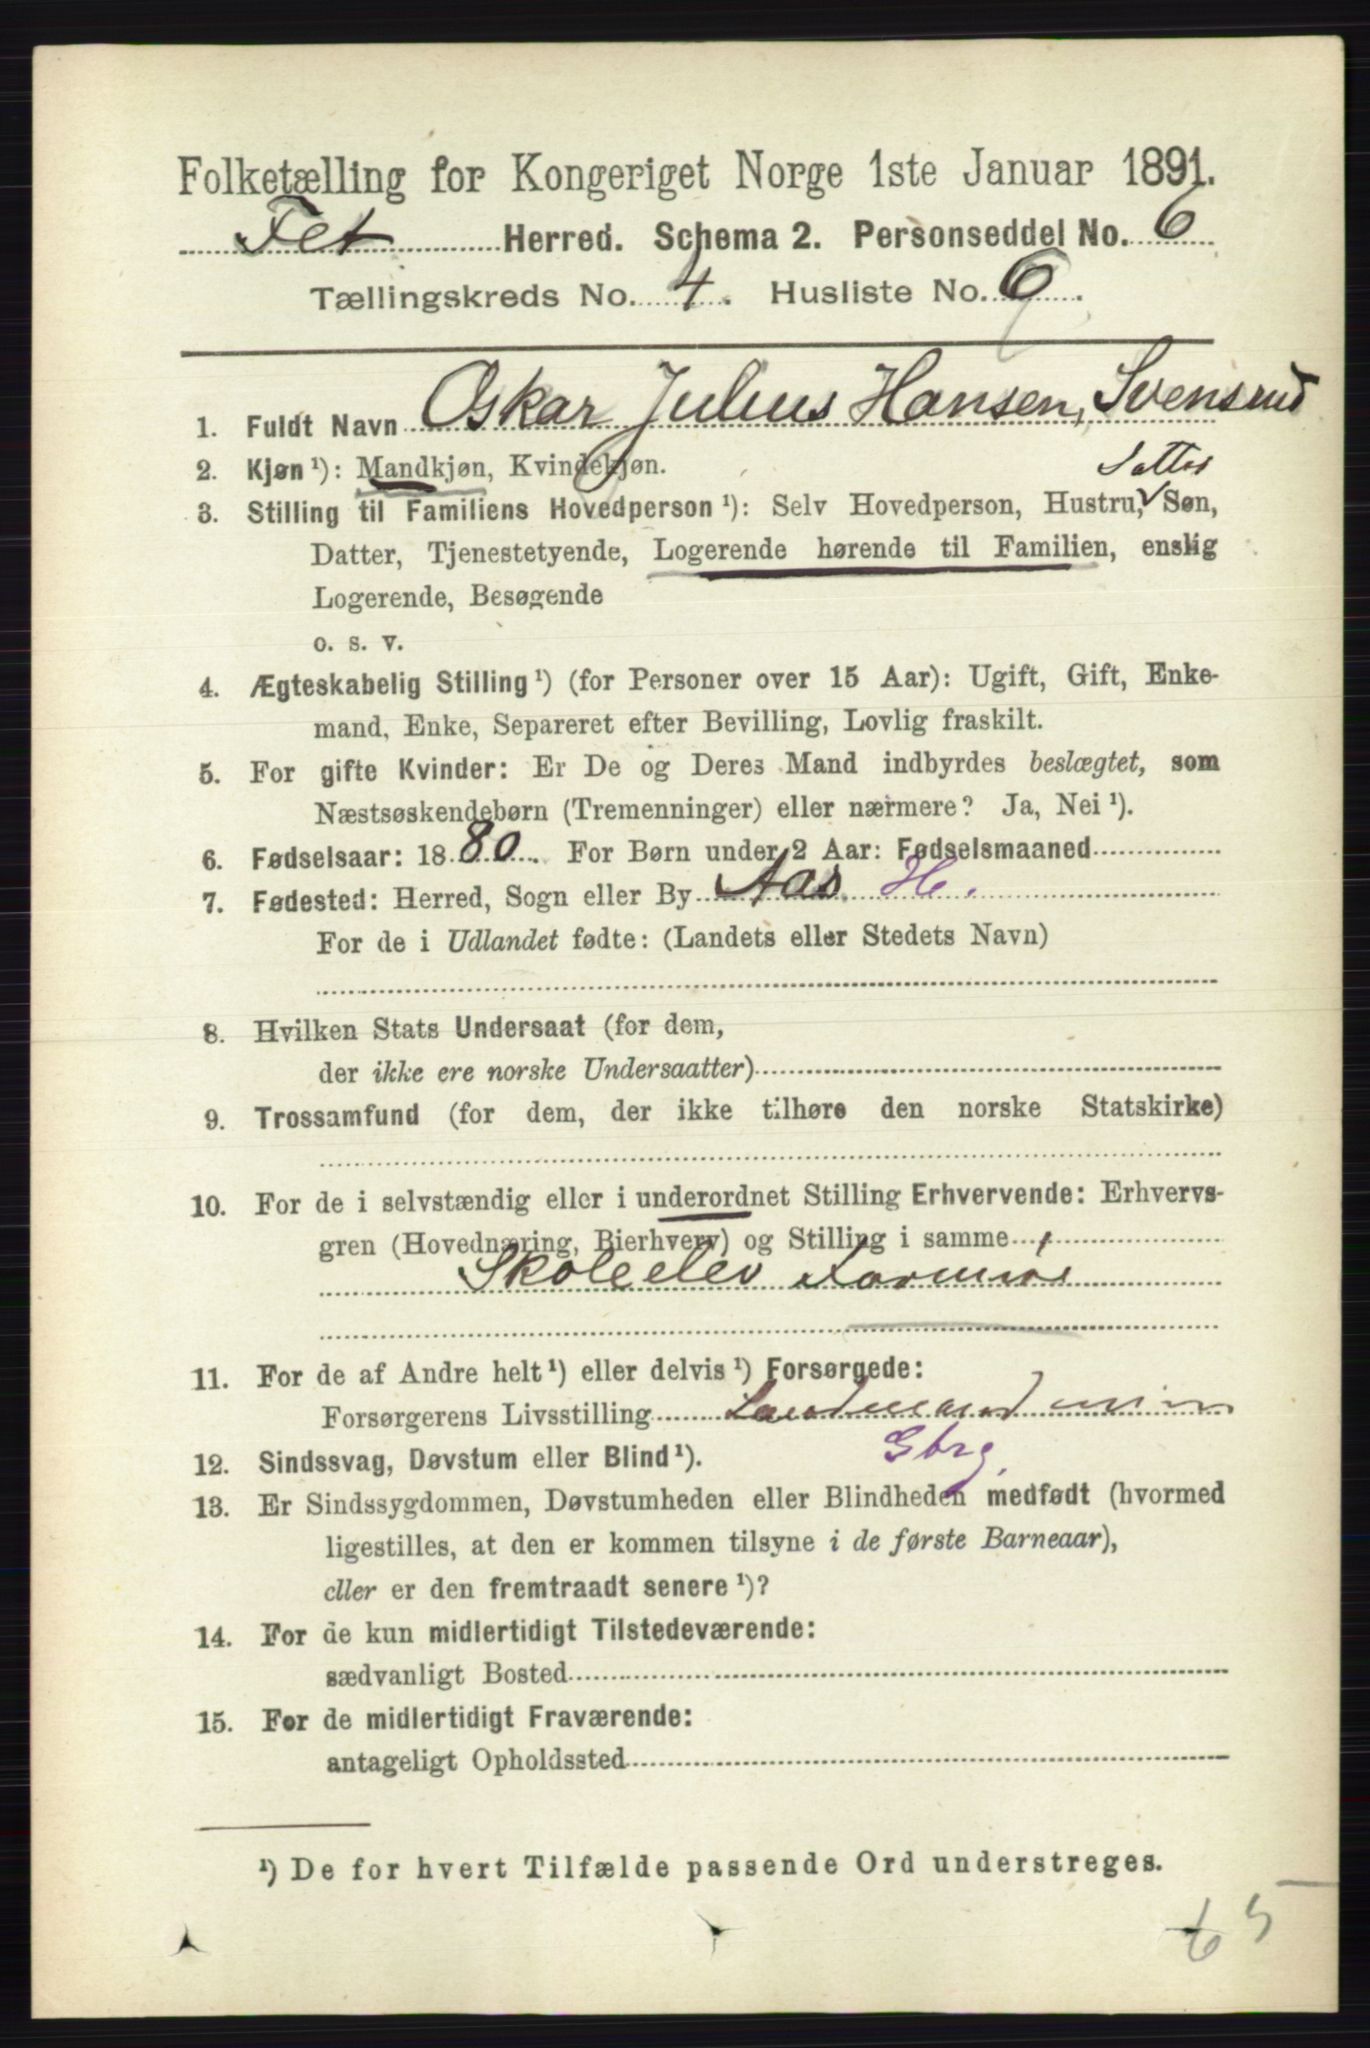 Folketælling for Kongeriget Norge 1ste Januar 1891.
Fet Herred. Schema 2. Personseddel No. 6
Tællingskreds No. 4. Husliste No. 6.
1. Fuldt Navn Oskar Julius Hansen, Svensrud
2. Kjøn ¹): Mandkjøn, Kvindekjøn.
3. Stilling til Familiens Hovedperson ¹): Selv Hovedperson, Hustru, Søn,
Datter, Tjenestetyende, Logerende hørende til Familien, enslig
Logerende, Besøgende
o. s. v.
4. Ægteskabelig Stilling ¹) (for Personer over 15 Aar): Ugift, Gift, Enke-
mand, Enke, Separeret efter Bevilling, Lovlig fraskilt.
5. For gifte Kvinder: Er De og Deres Mand indbyrdes beslægtet, som
Næstsøskendebørn (Tremenninger) eller nærmere? Ja, Nei ¹).
6. Fødselsaar: 1880. For Børn under 2 Aar: Fødselsmaaned
7. Fødested: Herred, Sogn eller By Aas H.
For de i Udlandet fødte: (Landets eller Stedets Navn)
8. Hvilken Stats Undersaat (for dem,
der ikke ere norske Undersaatter)
9. Trossamfund (for dem, der ikke tilhøre den norske Statskirke)
10. For de i selvstændig eller i underordnet Stilling Erhvervende: Erhvervs-
gren (Hovednæring, Bierhverv) og Stilling i samme
Skoleelev
11. For de af Andre helt ¹) eller delvis ¹) Forsørgede:
Forsørgerens Livsstilling Landmand
Gbrg.
12. Sindssvag, Døvstum eller Blind ¹).
13. Er Sindssygdommen, Døvstumheden eller Blindheden medfødt (hvormed
ligestilles, at den er kommen tilsyne i de første Barneaar),
eller er den fremtraadt senere ¹)?
14. For de kun midlertidigt Tilstedeværende:
sædvanligt Bosted
15. For de midlertidigt Fraværende:
antageligt Opholdssted
¹) De for hvert Tilfælde passende Ord understreges.
65